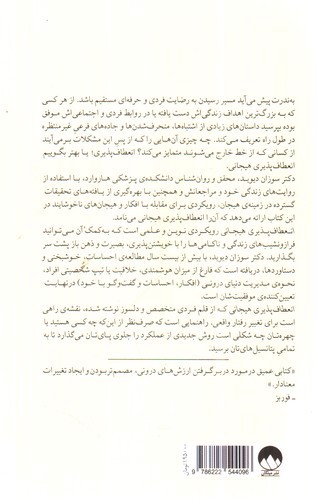 به‌ندرت پیش می‌آید مسیر رسیدن به رضایت فردی و حرفه‌ای مستقیم باشد. از هر کسی
که به بزرگ‌ترین اهداف زندگی‌اش دست یافته یا در روابط فردی و اجتماعی‌اش موفق
بوده بپرسید داستان‌های زیادی از اشتباه‌ها، منحرف‌شدن‌ها و جاده‌های فرعی غیرمنتظره
در طول راه تعریف می‌کند. چه چیزی آن‌هایی را که از پس این مشکلات برمی‌آیند
از کسانی که از خط خارج می‌شوند متمایز می‌کند؟ انعطاف‌پذیری؛ یا بهتر بگوییم
انعطاف‌پذیری هیجانی.
دکتر سوزان دیوید، محقق و روان‌شناس دانشکده‌ی پزشکی هاروارد، با استفاده از
روایت‌های زندگی خود و مراجعانش و همچنین با بهره‌گیری از یافته‌های تحقیقات
گسترده در زمینه‌ی هیجان، رویکردی برای مقابله با افکار و هیجان‌های ناخوشایند در
این کتاب ارائه می‌دهد که آن را انعطاف‌پذیری هیجانی می‌نامد.
انعطاف‌پذیری هیجانی رویکردی نوین و علمی است که به‌کمک آن می‌توانید
فرازونشیب‌های زندگی و ناکامی‌ها را با خویشتن‌پذیری، بصیرت و ذهن باز پشت سر
بگذارید. دکتر سوزان دیوید، با بیش از بیست سال مطالعه‌ی احساسات، خوشبختی و
دستاوردها، دریافته است که فارغ از میزان هوشمندی، خلاقیت یا تیپ شخصیتی افراد،
نحوه‌ی مدیریت دنیای درونی (افکار، احساسات و گفت‌وگو با خود) درنهایت
تعیین‌کننده‌ی موفقیت‌شان است.
انعطاف‌پذیری هیجانی که از قلم فردی متخصص و دلسوز نوشته شده، نقشه‌ی راهی
است برای تغییر رفتار واقعی. راهنمایی است که صرف‌نظر از این‌که چه کسی هستید یا
چهره‌تان چه شکلی است روش جدیدی از عملکرد را جلوی پای‌تان می‌گذارد تا به
تمامی پتانسیل‌های‌تان برسید.
«کتابی عمیق درمورد دربرگرفتن ارزش‌های درونی، مصمم‌تر بودن و ایجاد تغییرات
معنادار.»
ـ فوربز
تومان
9 786222 544096